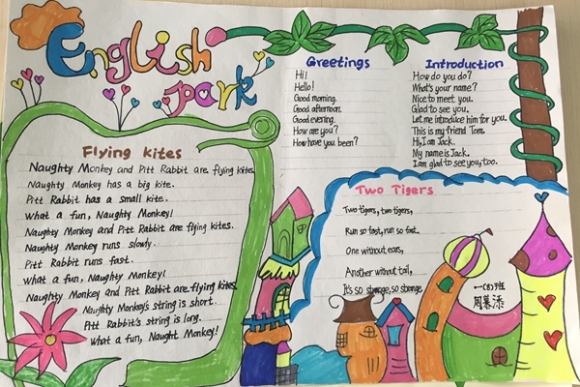 English
park
Flying kites
Naughty Monkey and Pitt Rabbit are flying kites.
Naughty Monkey has a big kite.
Pitt Rabbit has a small kite.
What a fun, Naughty Monkey!
Naughty Monkey and Pitt Rabbit are flying kites.
Naughty Monkey runs slowly.
Pitt Rabbit runs fast.
What a fun, Naughty Monkey!
Naughty Monkey and Pitt Rabbit are flying kites.
Naughty Monkey's string is short.
Pitt Rabbit's string is long.
What a fun, Naught Monkey!
Greetings
Hi!
Hello!
Good morning.
Good afternoon.
Good evening.
How are you?
How have you been?
Introduction
How do you do?
What's your name?
Nice to meet you.
Glad to see you.
Let me introduce him for you.
This is my friend Tom.
Hi, I am Jack.
My name is Jack.
I am glad to see you, too.
Two Tigers
Two tigers, two tigers,
Run so fast, run so fast.
One without ears,
Another without tail,
It's so strange, so strange.
一(8)班